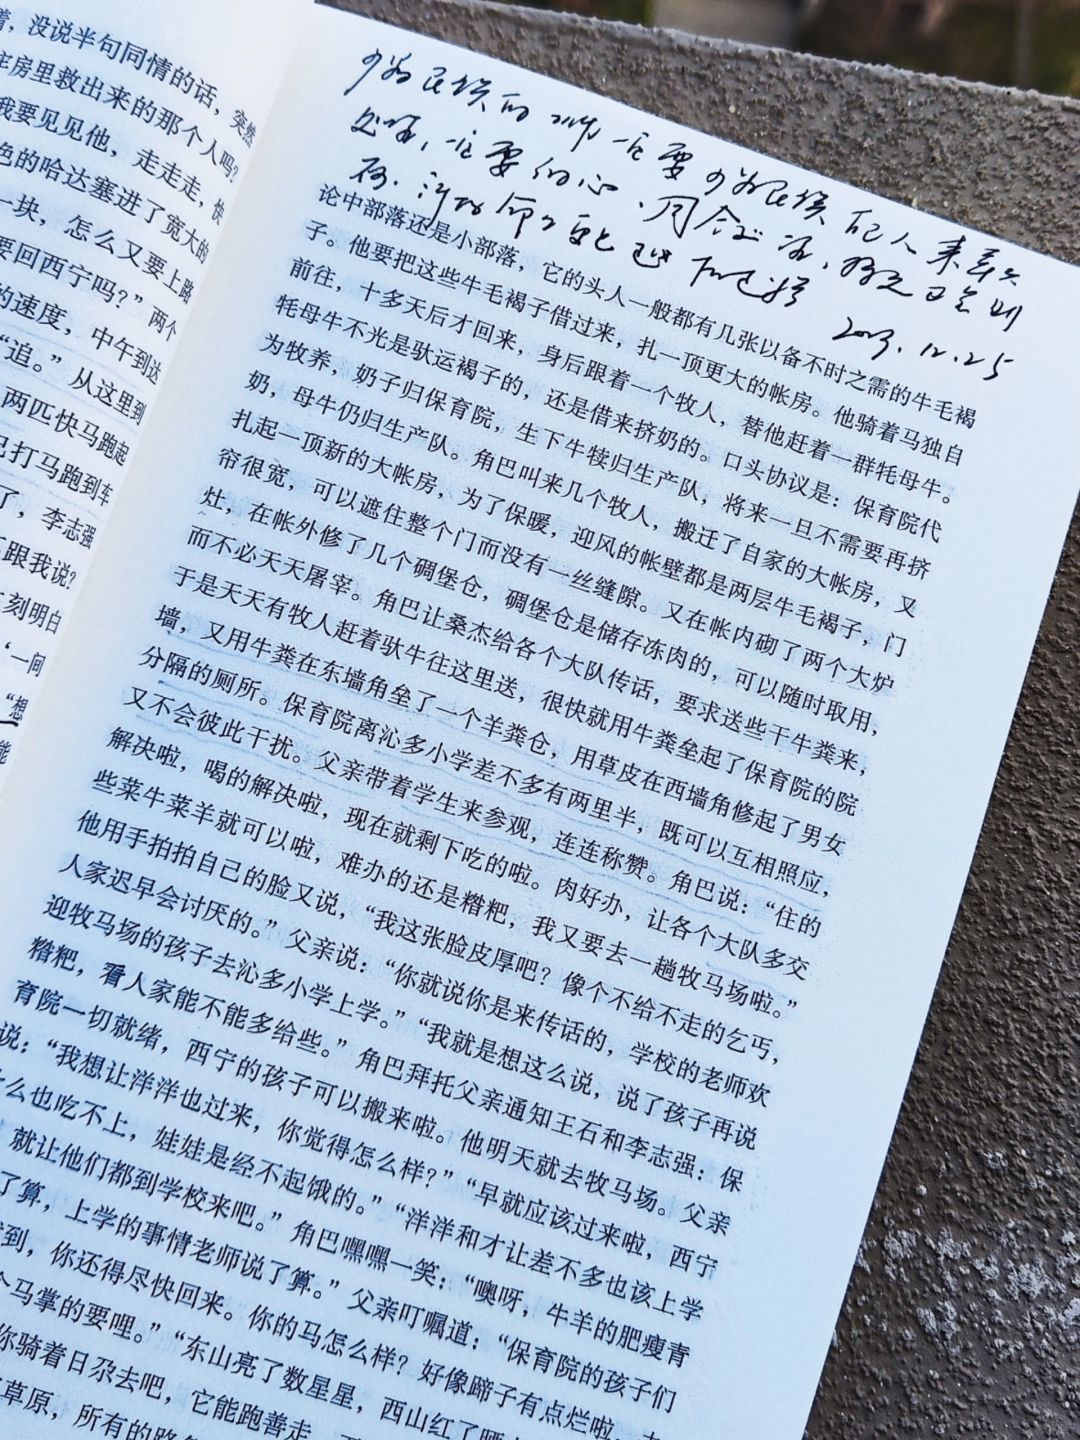 着，没说半句同情的话，突然
房里救出来的那个人吗？
我要见见他，走走走，快
色的哈达塞进了宽大的
一块，怎么又要上路
要回西宁吗？”两个
的速度，中午到达
“追。”从这里到
两匹快马跑起
己打马跑到车
了，李志强
跟我说？
刻明白
‘一间
“想
能
一定要
一定要
2023.12.25
论中部落还是小部落，它的头人一般都有几张以备不时之需的牛毛褐
子。他要把这些牛毛褐子借过来，扎一顶更大的帐房。他骑着马独自
前往，十多天后才回来，身后跟着一个牧人，替他赶着一群牦母牛。
牦母牛不光是驮运褐子的，还是借来挤奶的。口头协议是：保育院代
为牧养，奶子归保育院，生下牛犊归生产队，将来一旦不需要再挤
奶，母牛仍归生产队。角巴叫来几个牧人，搬迁了自家的大帐房，又
扎起一顶新的大帐房，为了保暖，迎风的帐壁都是两层牛毛褐子，门
帘很宽，可以遮住整个门而没有一丝缝隙。又在帐内砌了两个大炉
灶，在帐外修了几个碉堡仓，碉堡仓是储存冻肉的，可以随时取用，
而不必天天屠宰。角巴让桑杰给各个大队传话，要求送些干牛粪来，
于是天天有牧人赶着驮牛往这里送，很快就用牛粪垒起了保育院的院
墙，又用牛粪在东墙角垒了一个羊粪仓，用草皮在西墙角修起了男女
分隔的厕所。保育院离沁多小学差不多有两里半，既可以互相照应，
又不会彼此干扰。父亲带着学生来参观，连连称赞。角巴说：“住的
解决啦，喝的解决啦，现在就剩下吃的啦。肉好办，让各个大队多交
些菜牛菜羊就可以啦，难办的还是糌粑，我又要去一趟牧马场啦。”
他用手拍拍自己的脸又说，“我这张脸皮厚吧？像个不给不走的乞丐，
人家迟早会讨厌的。”父亲说：“你就说你是来传话的，学校的老师欢
迎牧马场的孩子去沁多小学上学。”“我就是想这么说，说了孩子再说
糌粑，看人家能不能多给些。”角巴拜托父亲通知王石和李志强：保
育院一切就绪，西宁的孩子可以搬来啦。他明天就去牧马场。父亲
说：“我想让洋洋也过来，你觉得怎么样？”“早就应该过来啦，西宁
什么也吃不上，娃娃是经不起饿的。”“洋洋和才让差不多也该上学
就让他们都到学校来吧。”角巴嘿嘿一笑：“噢呀，牛羊的肥瘦青
了算，上学的事情老师说了算。”父亲叮嘱道：“保育院的孩子们
到，你还得尽快回来。你的马怎么样？好像蹄子有点烂啦
个马掌的要哩。”“东山亮了数星星，西山红了
你骑着日尕去吧，它能跑善走
草原，所有的路